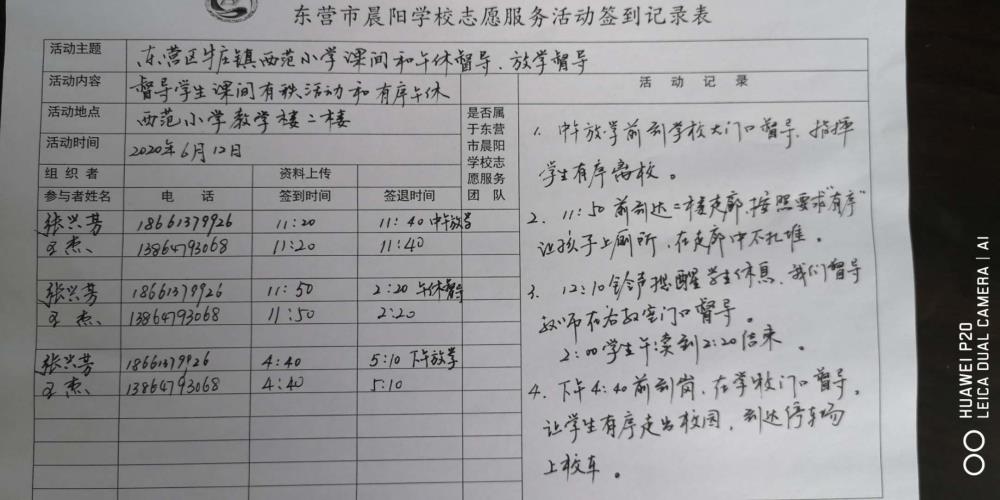 东营市晨阳学校志愿服务活动签到记录表
活动主题 东营区牛庄镇西范小学课间和午休督导、放学督导
活动内容 督导学生课间有秩活动和有序午休
活动地点 西范小学教学楼二楼
活动时间 2020年6月12日
组织者 资料上传
参与者姓名 电话 签到时间 签退时间
是否属
于东营
市晨阳
学校志
愿服务
团队
张兴芳 18661379926 11:20 11:40 中午放学
王杰、 13864793068 11:20 11:40
张兴芳 18661379926 11:50 2:20 午休督导
王杰、 13864793068 11:50 2:20
张兴芳 18661379926 4:40 5:10 下午放学
王杰、 13864793068 4:40 5:10
活动记录
1. 中午放学前到学校大门口督导、指挥
学生有序离校。
2. 11:50前到达二楼走廊,按照要求"有序"
让孩子上厕所,在走廊中不扎堆。
3. 12:10铃声提醒学生休息、我们督导
教师在各教室门口督导。
2:00学生午读到2:20结束。
4. 下午4:40前到岗,在学校门口督导,
让学生有序走出校园,到达停车场
上校车。
HUAWEI P20
LEICA DUAL CAMERA | AI